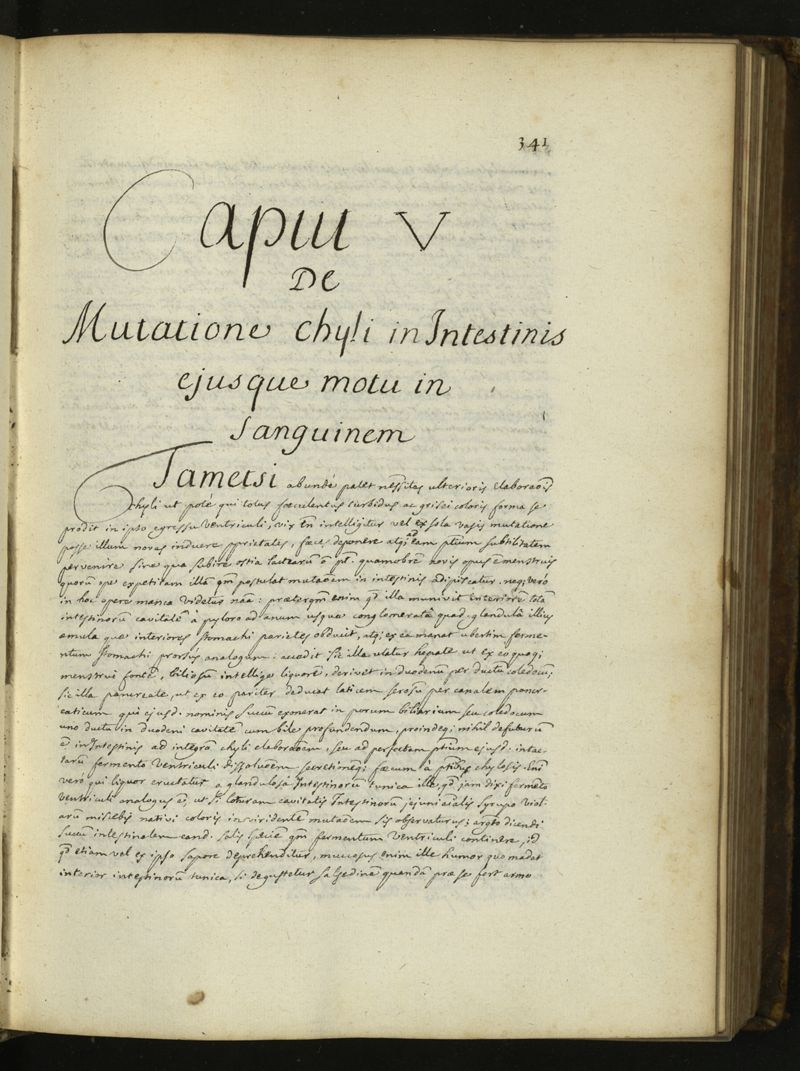 341
Caput V
De
Mutatione chyli in Intestinis
ejusque motu in
Sanguinem
Tametsi abunde patet neссitas ulterioris elaboraõis
chyli ut poté qui totus fœculentus turbidus ac grisei coloris forma se
prodit in ipso egressu ventriculi, vix tñ intelligitur vel ex sola vasis mutatione
posse illum novas induere pprietates, fœces deponere atq; ad eam ptium subtilitatem
pervenire sine qua subire ostia lactearũ õ pt. quamobrẽ novis opus ẽ menstruis
quorũ ope expetitam illã qm̃ postulat mutaõem in intestinis adipiscatur. neq; verò
in hoc opere manca videtur naã: præterqm̃ enim qd illa munivit interiorẽ totã
intestinorũ cavitatẽ à pyloro ad anum usque conglomeratã quad. glandulã illius
æmula quæ interiores stomachi parietes obducit, atq; ex ea manat ubertim ferme-
ntum stomachi prorsus analogum: accedit sic illa utatur hepate ut ex eo quoq;
menstrui fonte, biliosũ intellige liquorẽ, derivet in duodenũ per ductũ coledocũ;
sic illa pancreate, ut ex eo pariter deducat laticem serosũ per canalem pancr-
eaticum qui ejusd. nominis succũ exonerat in porum biliarium seu coledocum
uno ductu in duodeni cavitatẽ cum bile profundendum, proindeq; nihil defuturũ
ẽ in Intestinis ad integrã chyli elaboraõem, seu ad perfectam ptium ejusd. intac-
tarũ fermento ventriculi dissoluõem secretionẽq; fœcum à ptibus chylosis. Enĩ
verò qui liquor eructatur a glandulosã Intestinorũ tunica ille, qd jam dixi fermẽto
ventriculi analogus ẽ, ut si loturam cavitatis Intestinorũ jejuni aialis syrupo viol-
arũ miscebis nativi coloris in viridem mutaõem sis observaturus; argto dicendi
succũ intestinalem eand. salis speciẽ qm̃ fermentum ventriculi continere, id
qd etiam vel ex ipso sapore deprehenditur, mucosus enim ille humor quo madet
interior intestinorũ tunica, si degustetur salsedinẽ quandã præ se fert armo